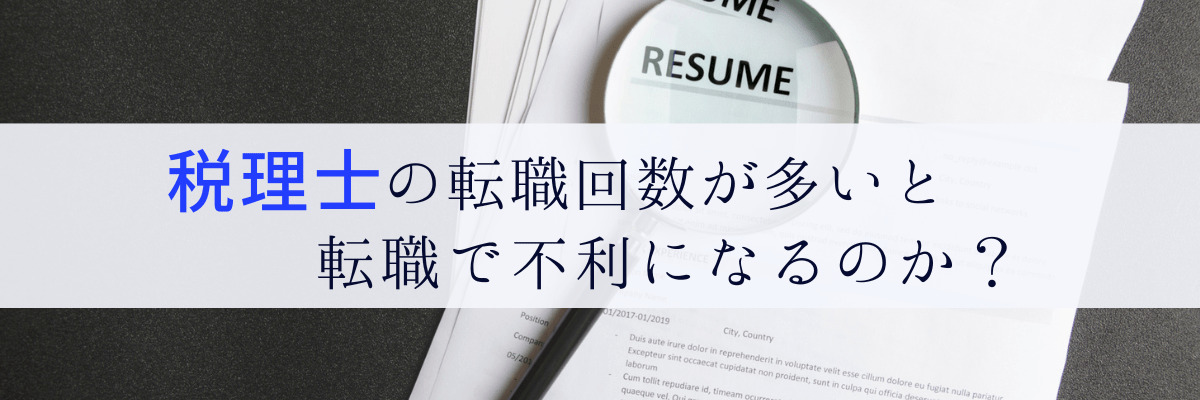 RESUME
税理士の転職回数が多いと
転職で不利になるのか？
01/2017-01/2019
Position
City, Country
Duis aute irure dolor in reprehenderit in voluptate velit esse cillum dolore eu fugiat nulla pariatur
Excepteur sint occaecat cupidatat non proident, sunt in culpa qui officia
laborum
Cum tollit repudiare id, timeam
quaeque vel.